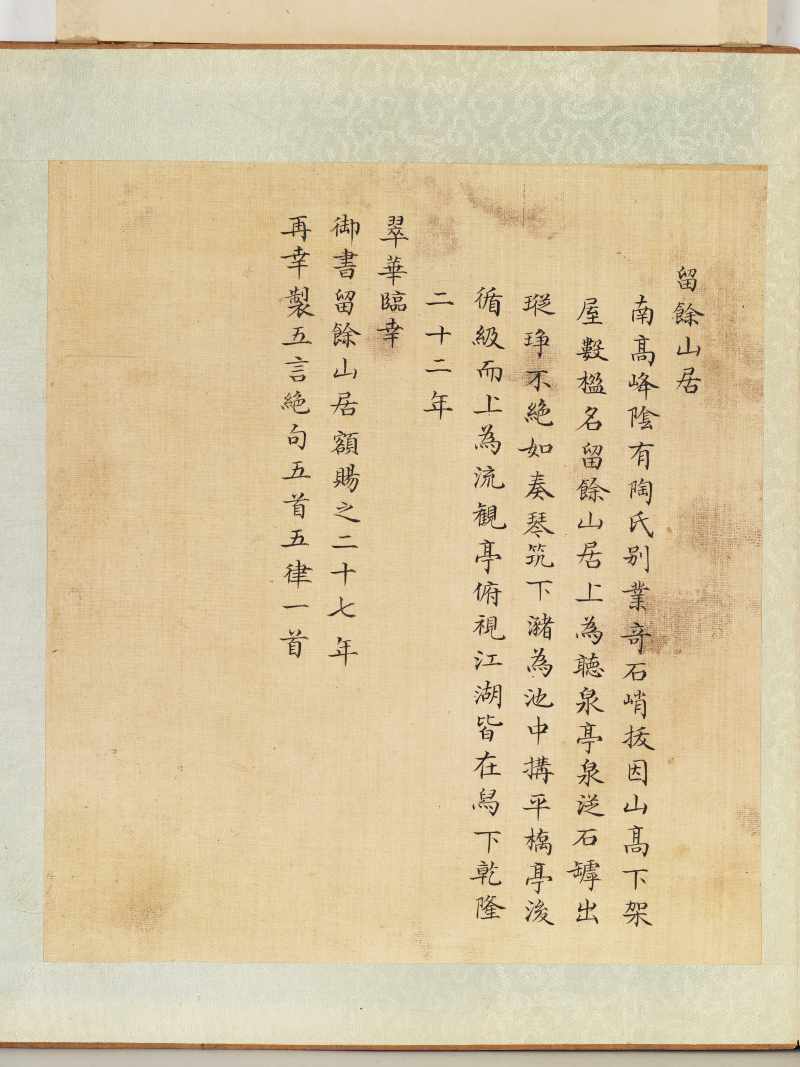 留餘山居
南髙峰隂有陶氏別業竒石峭拔因山髙下架
屋數楹名留餘山居上為聴泉亭泉从石罅出
瑽琤不絶如奏琴筑下瀦為池中搆平橋亭後
循級而上為流觀亭俯視江湖皆在舄下乾隆
二十二年
翠華臨幸
御書留餘山居額賜之二十七年
再幸製五言絶句五首五律一首